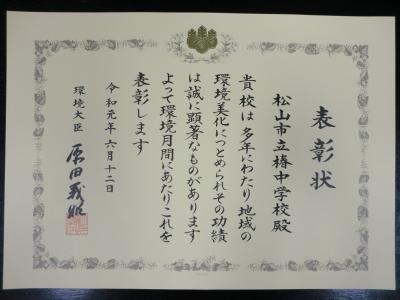 表彰状
松山市立椿中学校殿
貴校は多年にわたり地域の
環境美化につとめられその功績
は誠に顕著なものがあります
よって環境月間にあたりこれを
表彰します
令和元年六月十二日
環境大臣
原田義昭